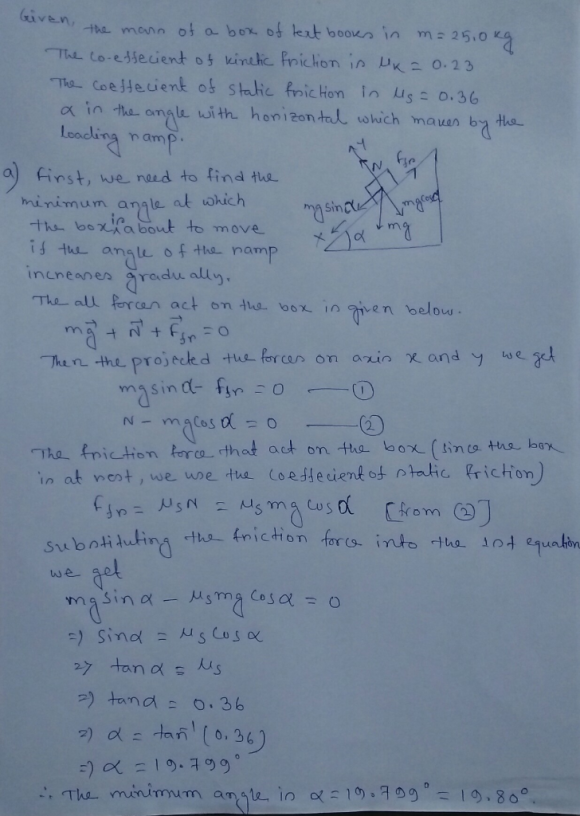 Given, the mann of a box of text books in m = 25.0 kg
The co-effecient of kinetic friction in μk = 0.23
The coeffecient of static friction in μs = 0.36
α in the angle with horizontal which maves by the
loading ramp.
a) First, we need to find the
minimum angle at which
the box is about to move
if the angle of the ramp
increanes gradually.
Y
N
ffr
mg sinα
mg cosα
mg
X
α
The all forces act on the box in given below.
mg⃗ + N⃗ + F⃗fr = 0
Then the projected the forces on axis x and y we get
mg sinα - ffr = 0 —— ①
N - mg cosα = 0 —— ②
The friction force that act on the box (since the box
in at rest, we use the coeffecient of static friction)
Ffr = μsN = μs mg cosα [from ②]
substituting the friction force into the 1st equation
we get
mg sinα - μs mg cosα = 0
=) sinα = μs cosα
=) tanα = μs
=) tanα = 0.36
=) α = tan⁻¹(0.36)
=) α = 19.799°
∴ The minimum angle in α = 19.799° = 19.80°.